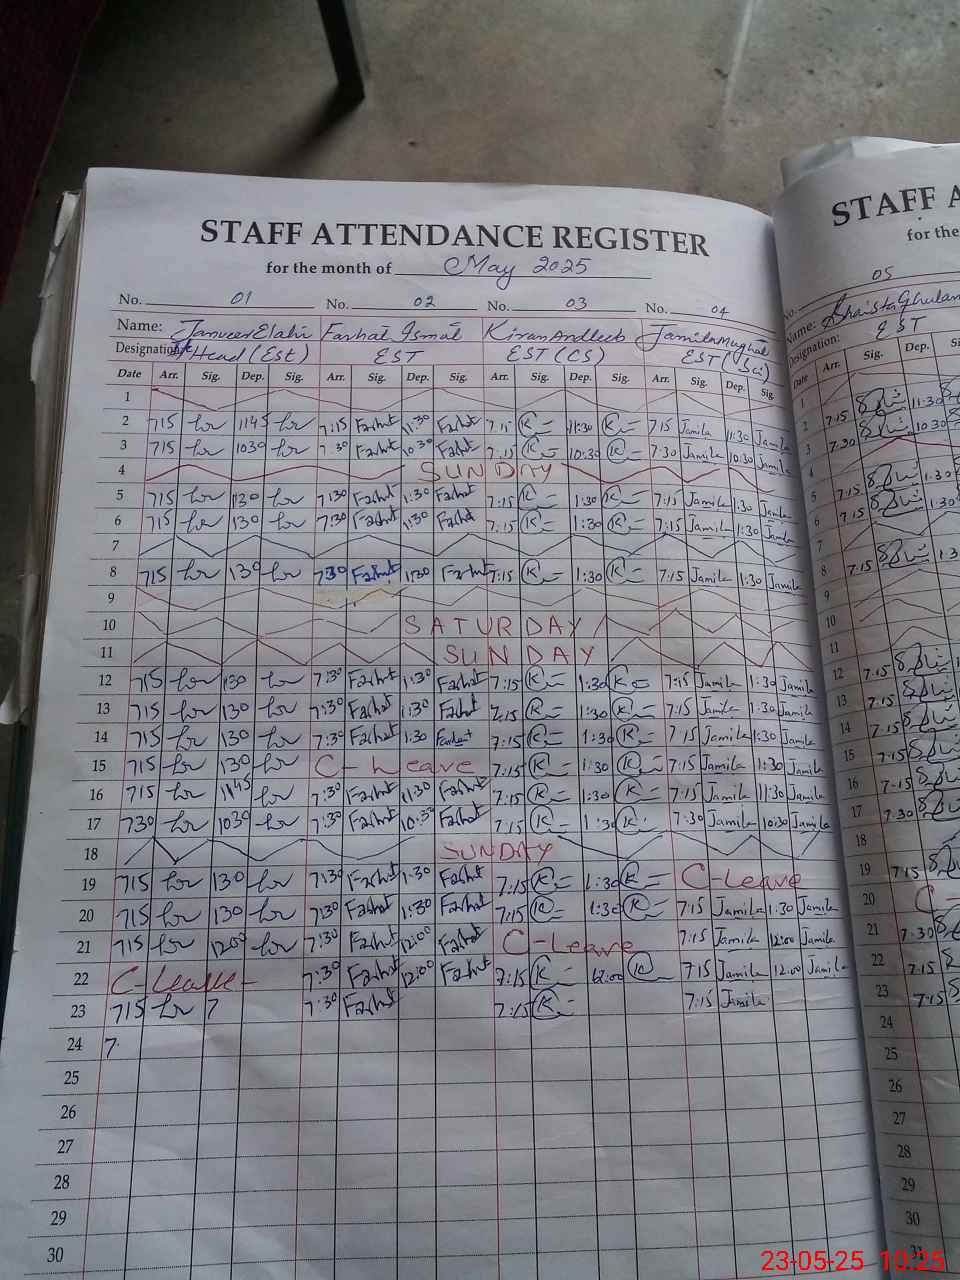 STAFF ATTENDANCE REGISTER
for the month of May 2025
No. 01 No. 02 No. 03 No. 04
Name: Tanveer Elahi Farhat Ismat Kiran Andleeb Jamila Mughal
Designation: Head (Est) EST EST (CS) EST (Sci)
Date Arr. Sig. Dep. Sig. Arr. Sig. Dep. Sig. Arr. Sig. Dep. Sig. Arr. Sig. Dep. Sig.
1
2 715 1145 7:15 Farhat 11:30 Farhat 7:15 K 11:30 K 7:15 Jamila 11:30 Jamila
3 715 1030 7:30 Farhat 10:30 Farhat 7:15 K 10:30 K 7:30 Jamila 10:30 Jamila
4 SUNDAY
5 715 130 7:30 Farhat 1:30 Farhat 7:15 K 1:30 K 7:15 Jamila 1:30 Jamila
6 715 130 7:30 Farhat 1:30 Farhat 7:15 K 1:30 K 7:15 Jamila 1:30 Jamila
7
8 715 130 7:30 Farhat 1:30 Farhat 7:15 K 1:30 K 7:15 Jamila 1:30 Jamila
9
10 SATURDAY
11 SUNDAY
12 715 130 7:30 Farhat 1:30 Farhat 7:15 K 1:30 K 7:15 Jamila 1:30 Jamila
13 715 130 7:30 Farhat 1:30 Farhat 7:15 K 1:30 K 7:15 Jamila 1:30 Jamila
14 715 130 7:30 Farhat 1:30 Farhat 7:15 K 1:30 K 7:15 Jamila 1:30 Jamila
15 715 130 C-Leave 7:15 K 1:30 K 7:15 Jamila 1:30 Jamila
16 715 1145 7:30 Farhat 11:30 Farhat 7:15 K 1:30 K 7:15 Jamila 11:30 Jamila
17 730 1030 7:30 Farhat 10:30 Farhat 7:15 K 1:30 K 7:30 Jamila 10:30 Jamila
18 SUNDAY
19 715 130 7:30 Farhat 1:30 Farhat 7:15 K 1:30 K C-Leave
20 715 130 7:30 Farhat 1:30 Farhat 7:15 K 1:30 K 7:15 Jamila 1:30 Jamila
21 715 1200 7:30 Farhat 12:00 Farhat C-Leave 7:15 Jamila 12:00 Jamila
22 C-Leave 7:30 Farhat 12:00 Farhat 7:15 K 12:00 K 7:15 Jamila 12:00 Jamila
23 715 7 7:30 Farhat 7:15 K 7:15 Jamila
24 7
25
26
27
28
29
30
STAFF A
for the
No. 05
Name: Shaista Ghulam
Designation: EST
Date Arr. Sig. Dep.
1
2 7:15 11:30
3 7:30 10:30
4
5 7:15 1:30
6 7:15 1:30
7
8 7:15 1:3
9
10
11
12 7:15
13 7:15
14 7:15
15 7:15
16 7:15
17 7:30
18
19 7:15
20 C-
21 7:30
22 7:15
23 7:15
24
25
26
27
28
29
30
23-05-25 10:25